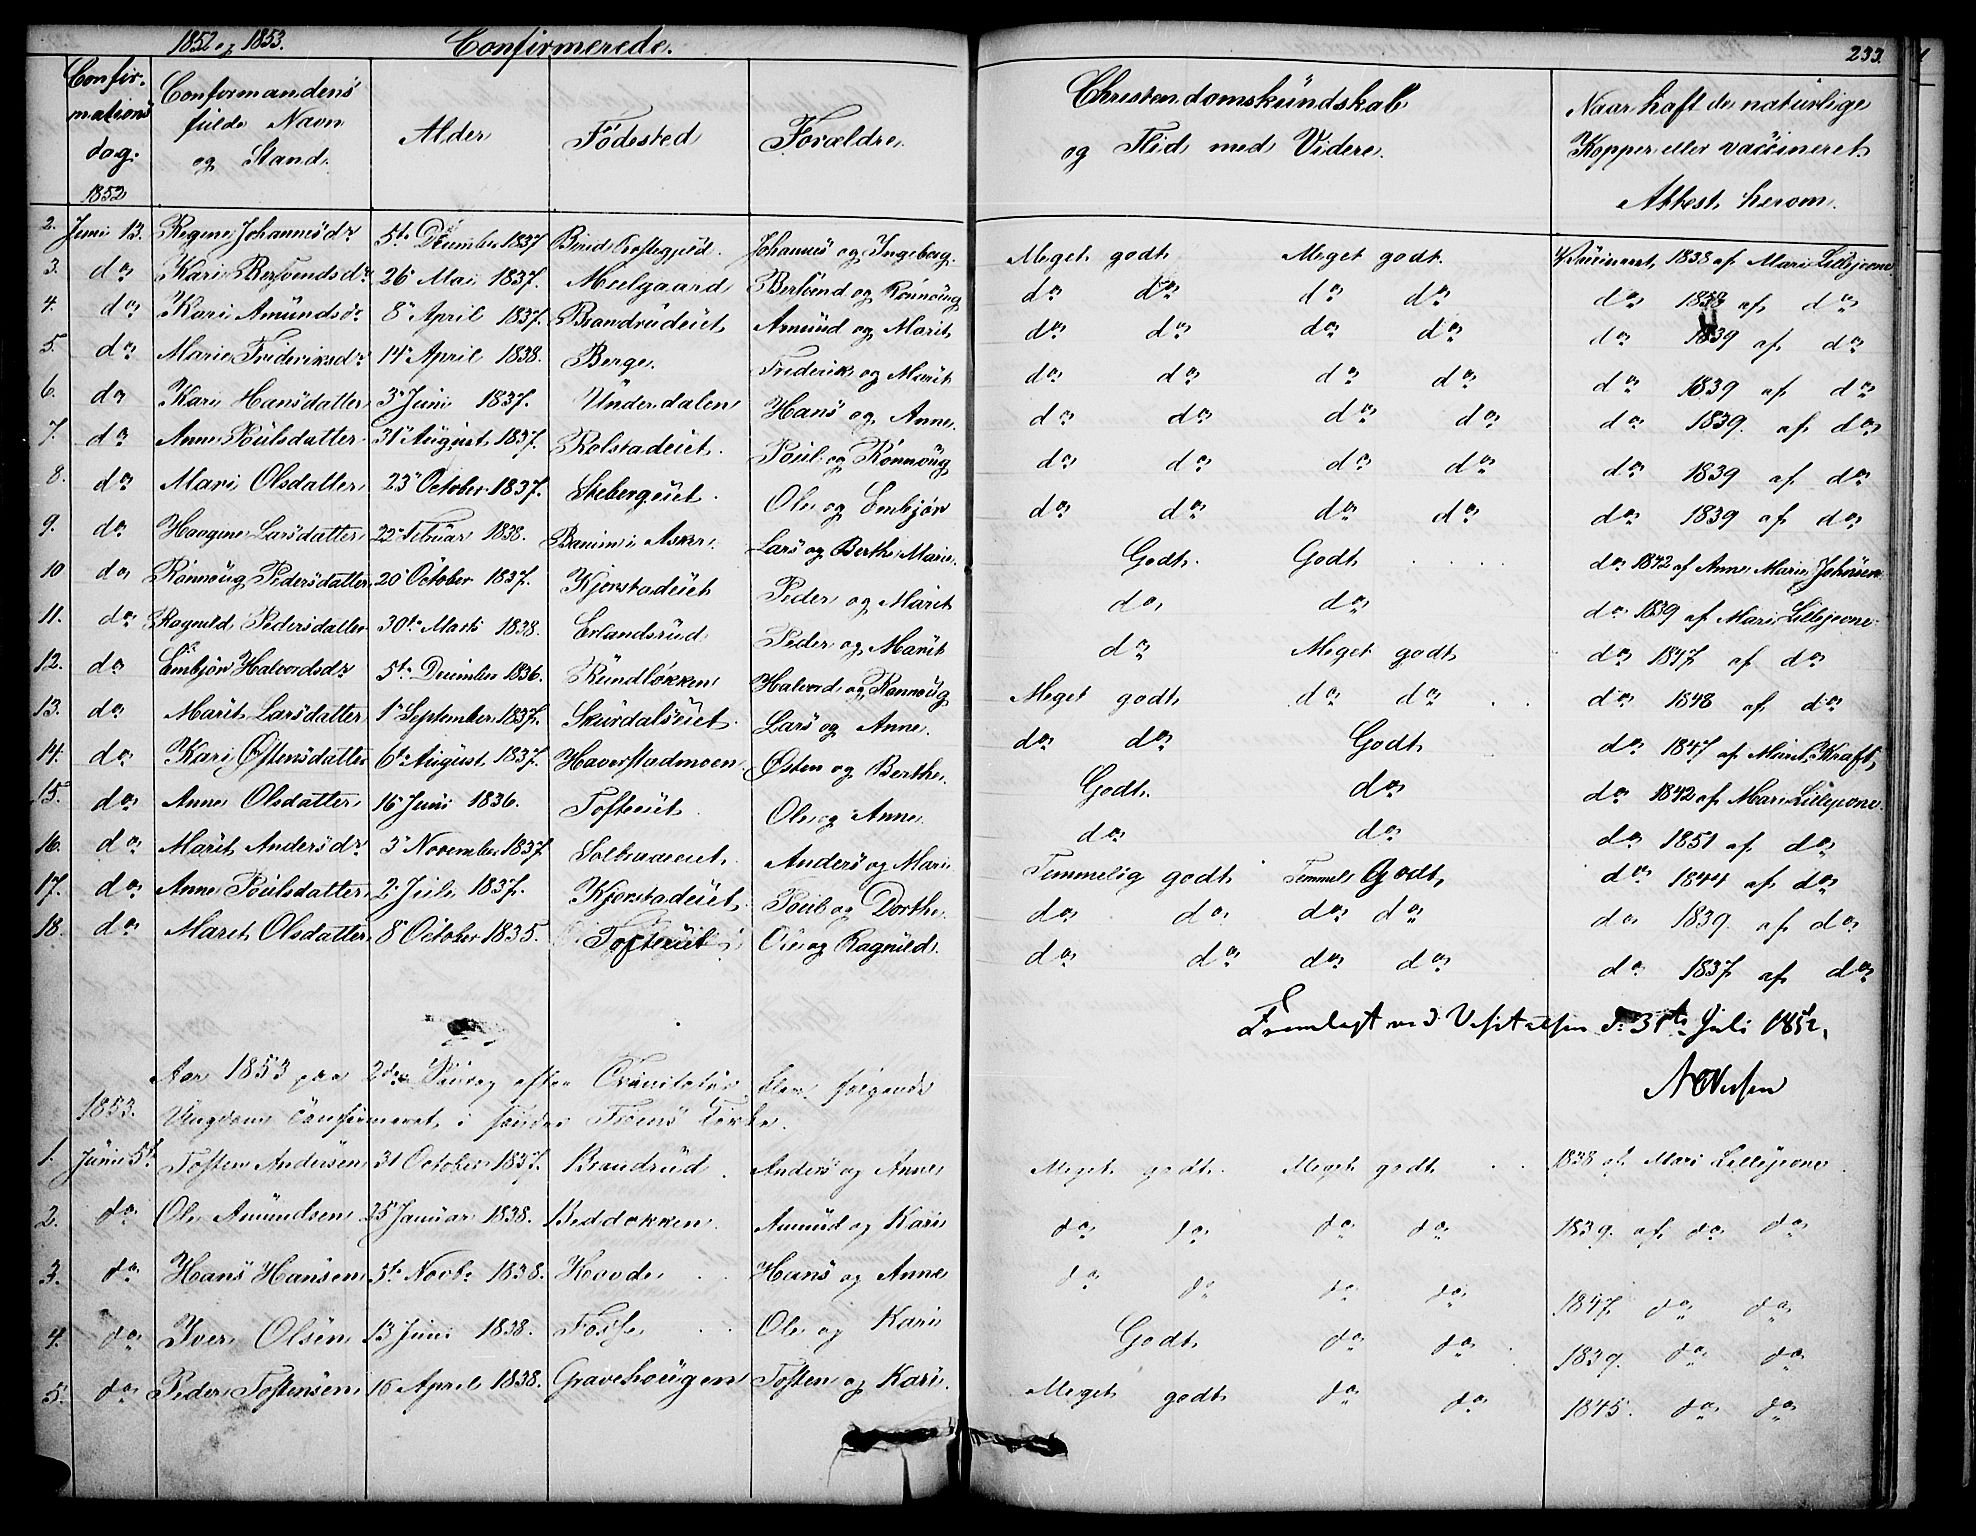 1852 og 1853. Confirmerede. 233.
Confirmations dag. Confirmandens fulde Navn og Stand. Alder Födested Forældre. Christendomskundskab og Flid med Videre. Naar haft de naturlige Kopper eller vaccineret. Attest herom.
1852
2. Juni 13. Regine Johannesdr 5te December 1837 Johannes og Ingeborg. Meget godt Meget godt. Vaccineret 1838 af Mari Lillejevne
3. do Kari Bersvendsdr 26 Mai 1837. Melgaard Bersvend og Rönnoug do do do do do 1838 af do
4. do Kari Amundsdr 8 April 1837. Brandrudeiet Amund og Marit do do do do do 1839 af do
5. do Marie Frideriksdr 14 April 1838. Berge. Frederik og Marit do do do do do 1839 af do
6. do Kari Hansdatter 3 Juni 1837. Underdalen Hans og Anne. do do do do do 1839. af do
7. do Anne Poulsdatter 31 August 1837. Rolstadeiet. Poul og Rönnoug do do do do do 1839 af do
8. do Mari Olsdatter 23 October 1837. Skebergeiet. Ole og Embjør do do do do do 1839 af do
9. do Haagine Larsdatter 22 Febuar 1838. Lars og Berthe Marie. Godt. Godt do 1842 af Anne Marie Johnsen
10 do Rönnoug Pedersdatter 20 October 1837. Kjorstadeiet Peder og Marit do do do 1839 af Mari Lillejevne
11. do Ragnild Pedersdatter 30te Marts 1838. Erlandsrud Peder og Marit do Meget godt do 1847 af do
12. do Embjör Halvordsdr 5te December 1836. Rundløkken Halvord og Rannoug Meget godt do do do 1848 af do
13. do Marit Larsdatter 1 September 1837. Skurdalseiet. Lars og Anne. do do Godt do 1847 af Marit Kraft,
14. do Kari Østensdatter 6te August 1837. Haverstadmoen Østen og Berthe. Godt. do do 1842 af Mari Lillejevne
15. do Anne Olsdatter 16 Juni 1836. Tofteeiet Ole og Anne do do do 1851 af do
16. do Marit Andersdr 3 November 1837 Solbraaeiet. Anders og Mari Temmelig godt Temmel. Godt, do 1844 af do
17. do Anne Poulsdatter 2 Juli 1837. Kjorstadeiet. Poul og Dorthe do do do do do 1839. af do
18. do Marit Olsdatter 8 October 1835. Tofteeiet Ole og Ragnild. do do do do do 1837 af do
Fremlagt ved Visitatsen d. 31te Juli 1852.
Aar 1853 paa 2den Söndag efter Trinitatis blev følgende
1853. Ungdom Confirmeret i søndre Froens Kirke.
1. Juni 5te Tosten Andersen 31 October 1837. Brandrud. Anders og Anne Meget godt. Meget godt 1838 af Mari Lillejevne
2. do Ole Amundsen 25 Januar 1838. Beddokken. Amund og Kari do do do do 1839. af do do
3. do Hans Hansen 5te Novbr 1838. Hovde Hans og Anne do do do do 1847 do do
4. do Iver Olsen 13 Juni 1838. Fosse Ole og Kari Godt do do 1839. do do
5. do Peder Tostensen 16 April 1838. Gravehougen Tosten og Kari. Meget godt do do 1845. do do